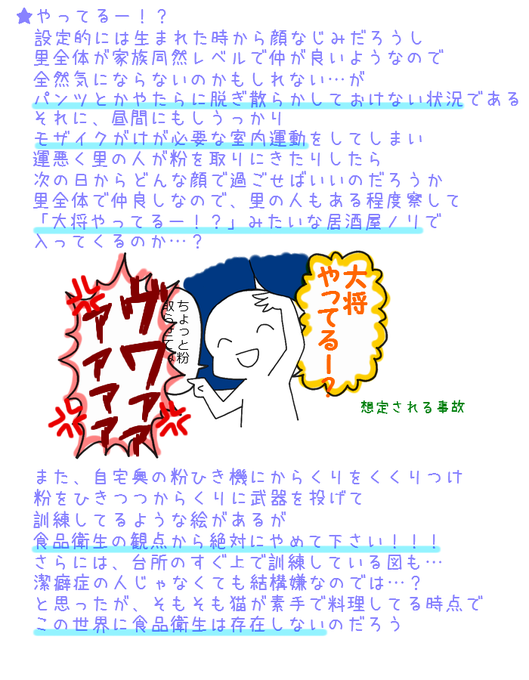 ★やってるー！？
設定的には生まれた時から顔なじみだろうし
里全体が家族同然レベルで仲が良いようなので
全然気にならないのかもしれない…が
パンツとかやたらに脱ぎ散らかしておけない状況である
それに、昼間にもしうっかり
モザイクがけが必要な室内運動をしてしまい
運悪く里の人が粉を取りにきたりしたら
次の日からどんな顔で過ごせばいいのだろうか
里全体で仲良しなので、里の人もある程度察して
「大将やってるー！？」みたいな居酒屋ノリで
入ってくるのか…？
大将
やってるー？
ちょっと粉
取らせて
ヴワァァ
ァァァァァ
想定される事故
また、自宅奥の粉ひき機にからくりをくくりつけ
粉をひきつつからくりに武器を投げて
訓練してるような絵があるが
食品衛生の観点から絶対にやめて下さい！！！
さらには、台所のすぐ上で訓練している図も…
潔癖症の人じゃなくても結構嫌なのでは…？
と思ったが、そもそも猫が素手で料理してる時点で
この世界に食品衛生は存在しないのだろう